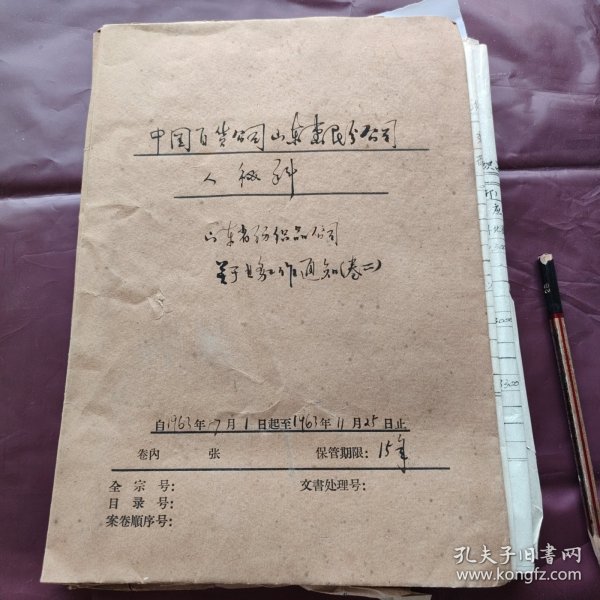 中国百货公司山东惠民分公司
人秘科
山东省纺织品公司
关于业务工作通知(卷二)
自1963年7月1日起至1963年11月25日止
卷内 张 保管期限：15年
全宗号： 文書处理号：
目录号：
案卷順序号：
孔夫子旧書网
www.kongfz.com